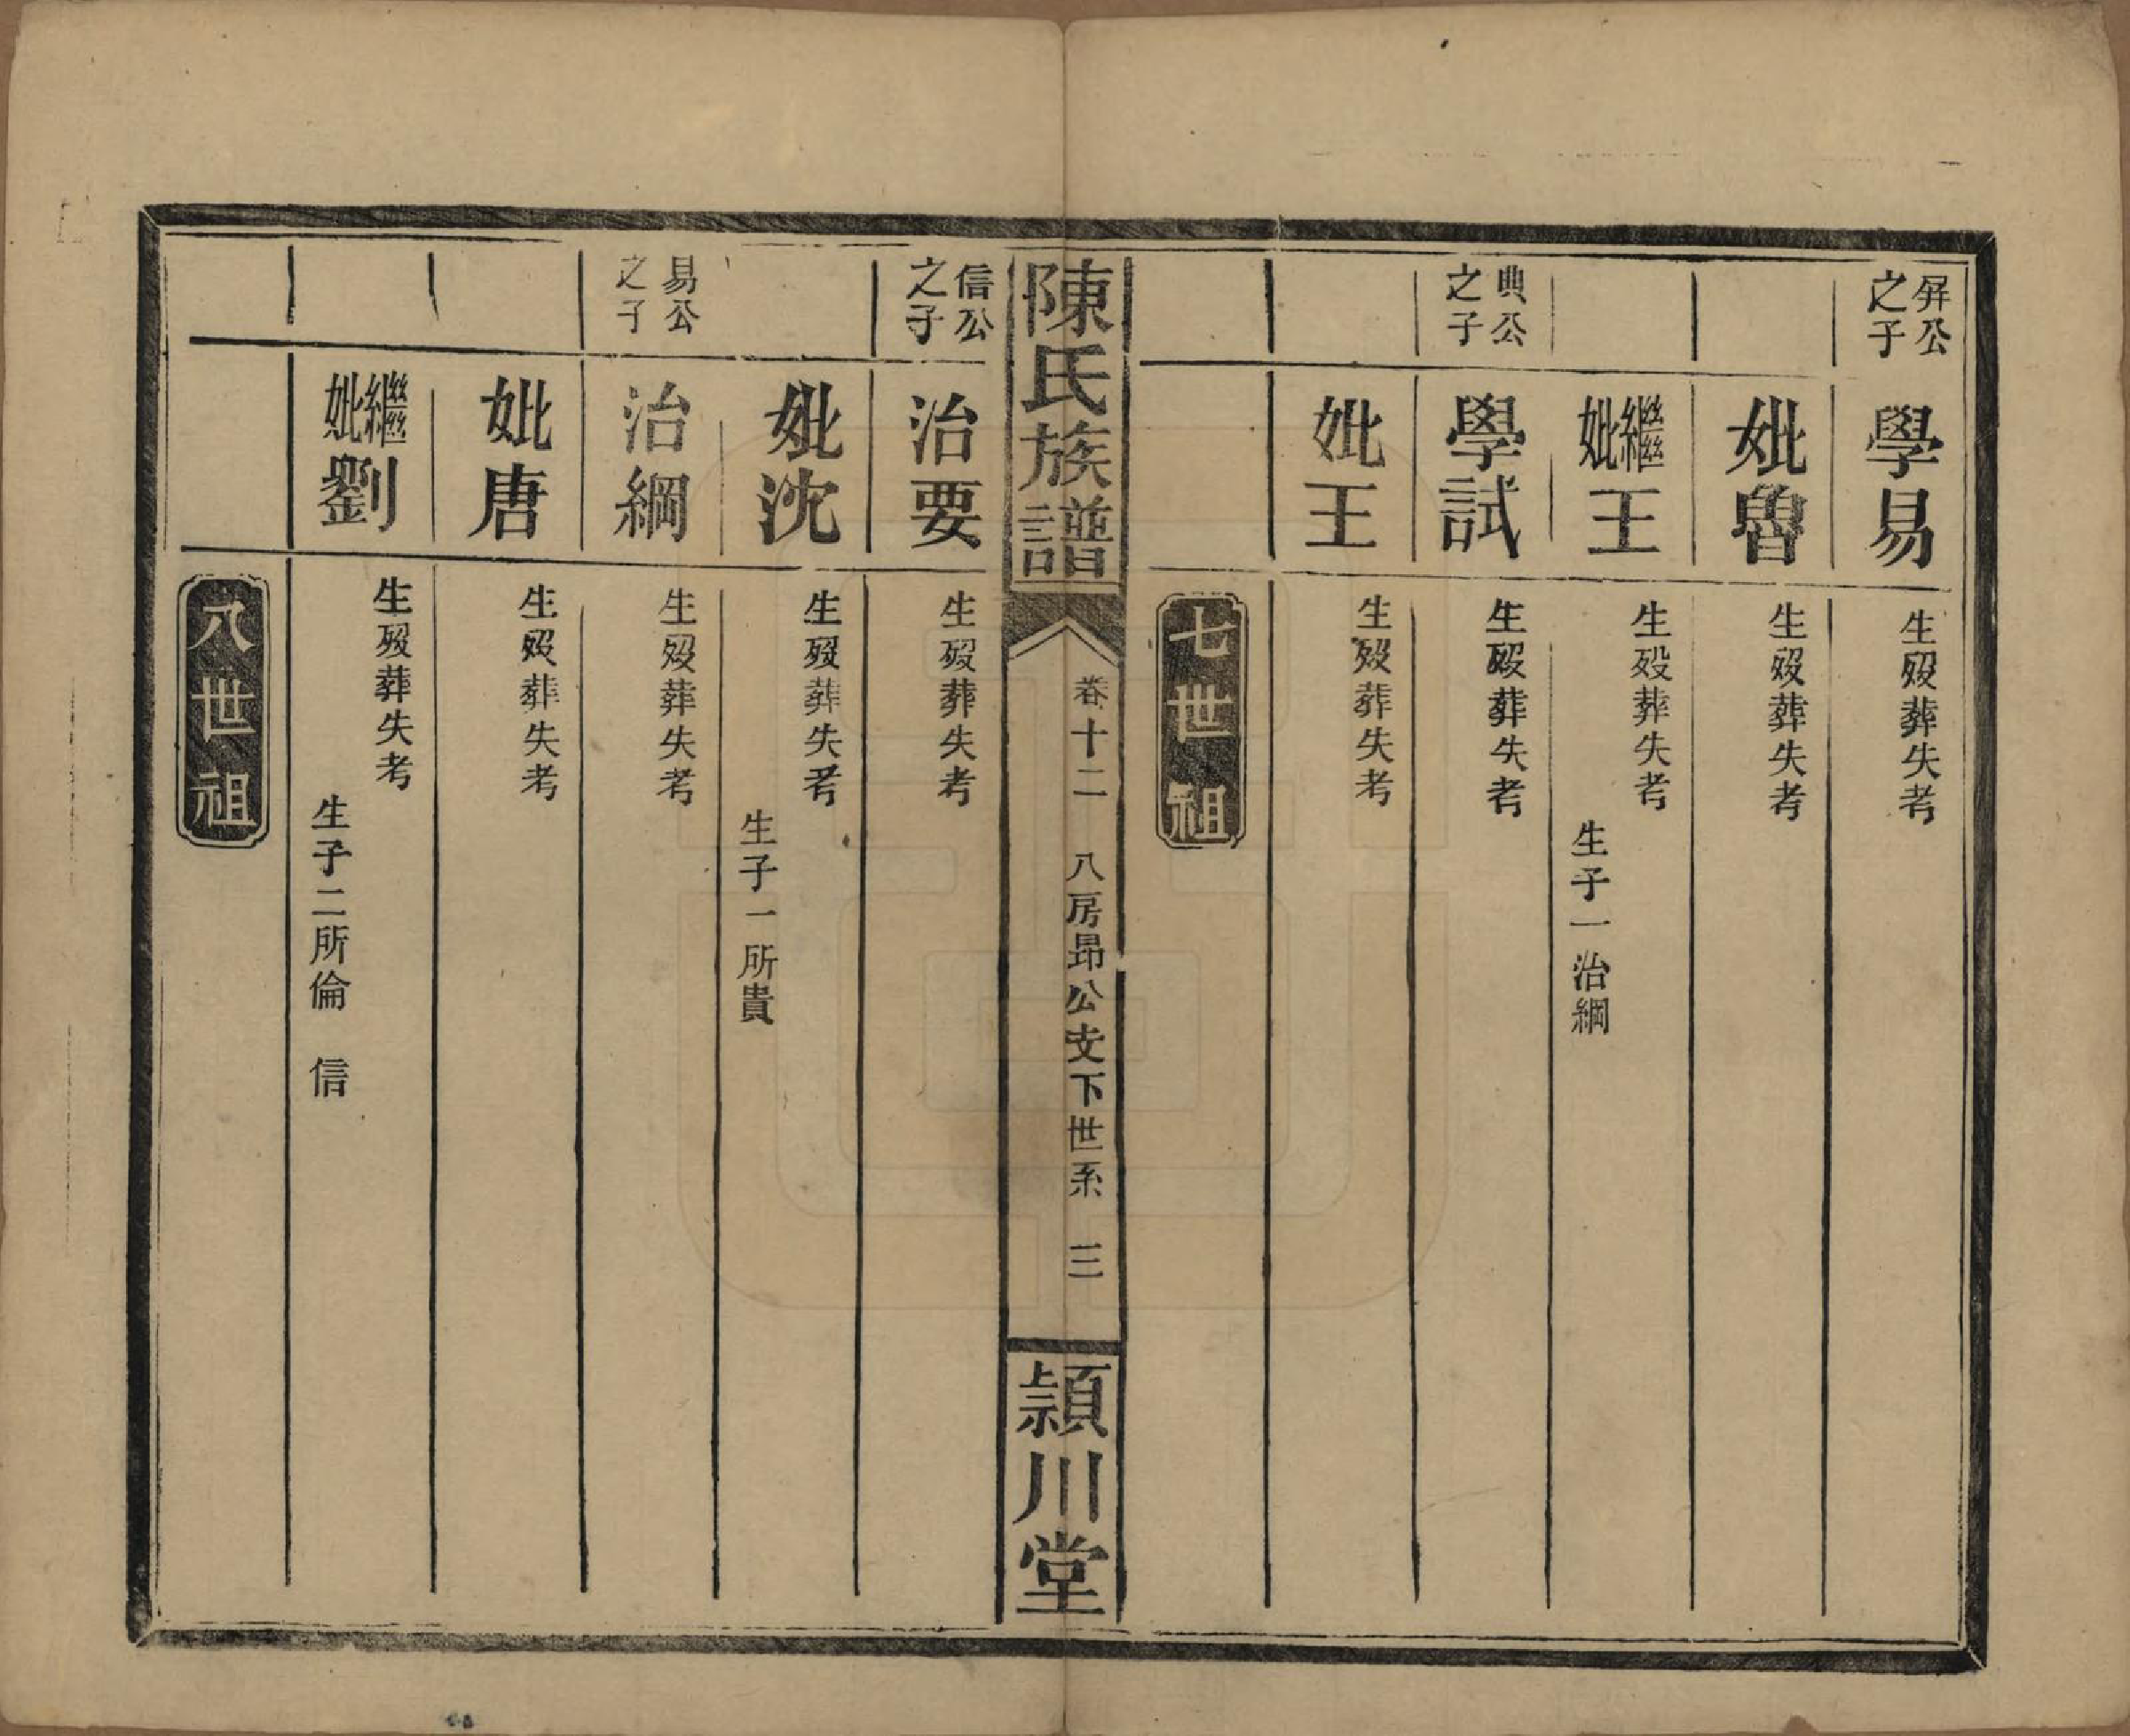 屏公之子
學易
生歿葬失考
妣魯
生歿葬失考
繼妣王
生歿葬失考
生子一治綱
典公之子
學試
生歿葬失考
妣王
生歿葬失考
七世祖
陳氏族譜
卷十二 八房昂公支下世系 三
潁川堂
信公之子
治要
生歿葬失考
妣沈
生歿葬失考
生子一所貴
易公之子
治綱
生歿葬失考
妣唐
生歿葬失考
繼妣劉
生歿葬失考
生子二所倫 信
八世祖